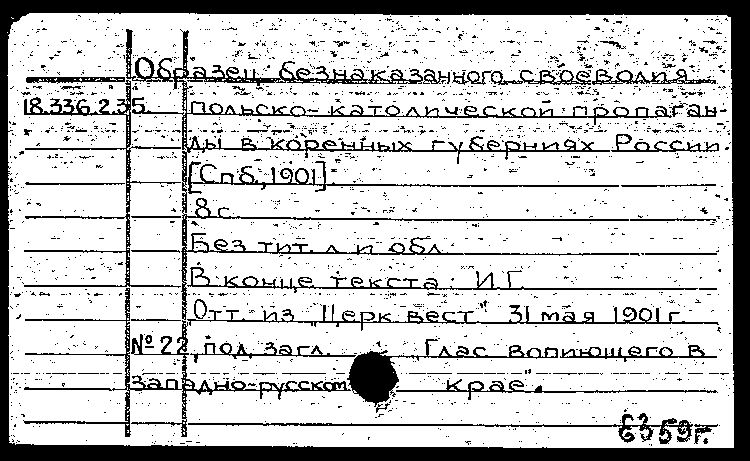 Образец безнаказанного своеволия
18.336.2.35 польско-католической пропаган-
ды в коренных губерниях России
[Спб., 1901].
8 с.
Без тит. л. и обл.
В конце текста: И.Г.
Отт. из „Церк. вест" 31 мая 1901 г.
№ 22, под загл. „Глас вопиющего в
западно-русском крае".
59 г.